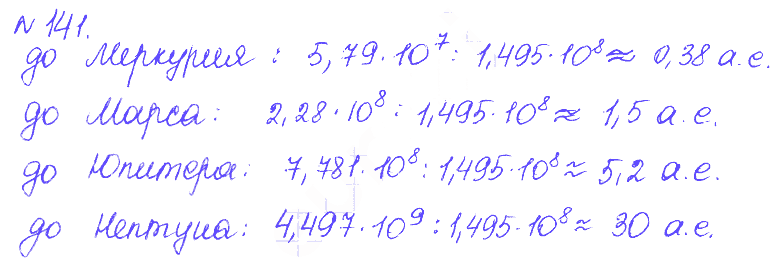 № 141.
до Меркурия: 5,79·10⁷: 1,495·10⁸ ≈ 0,38 а.е.
до Марса: 2,28·10⁸: 1,495·10⁸ ≈ 1,5 а.е.
до Юпитера: 7,781·10⁸: 1,495·10⁸ ≈ 5,2 а.е.
до Нептуна: 4,497·10⁹: 1,495·10⁸ ≈ 30 а.е.